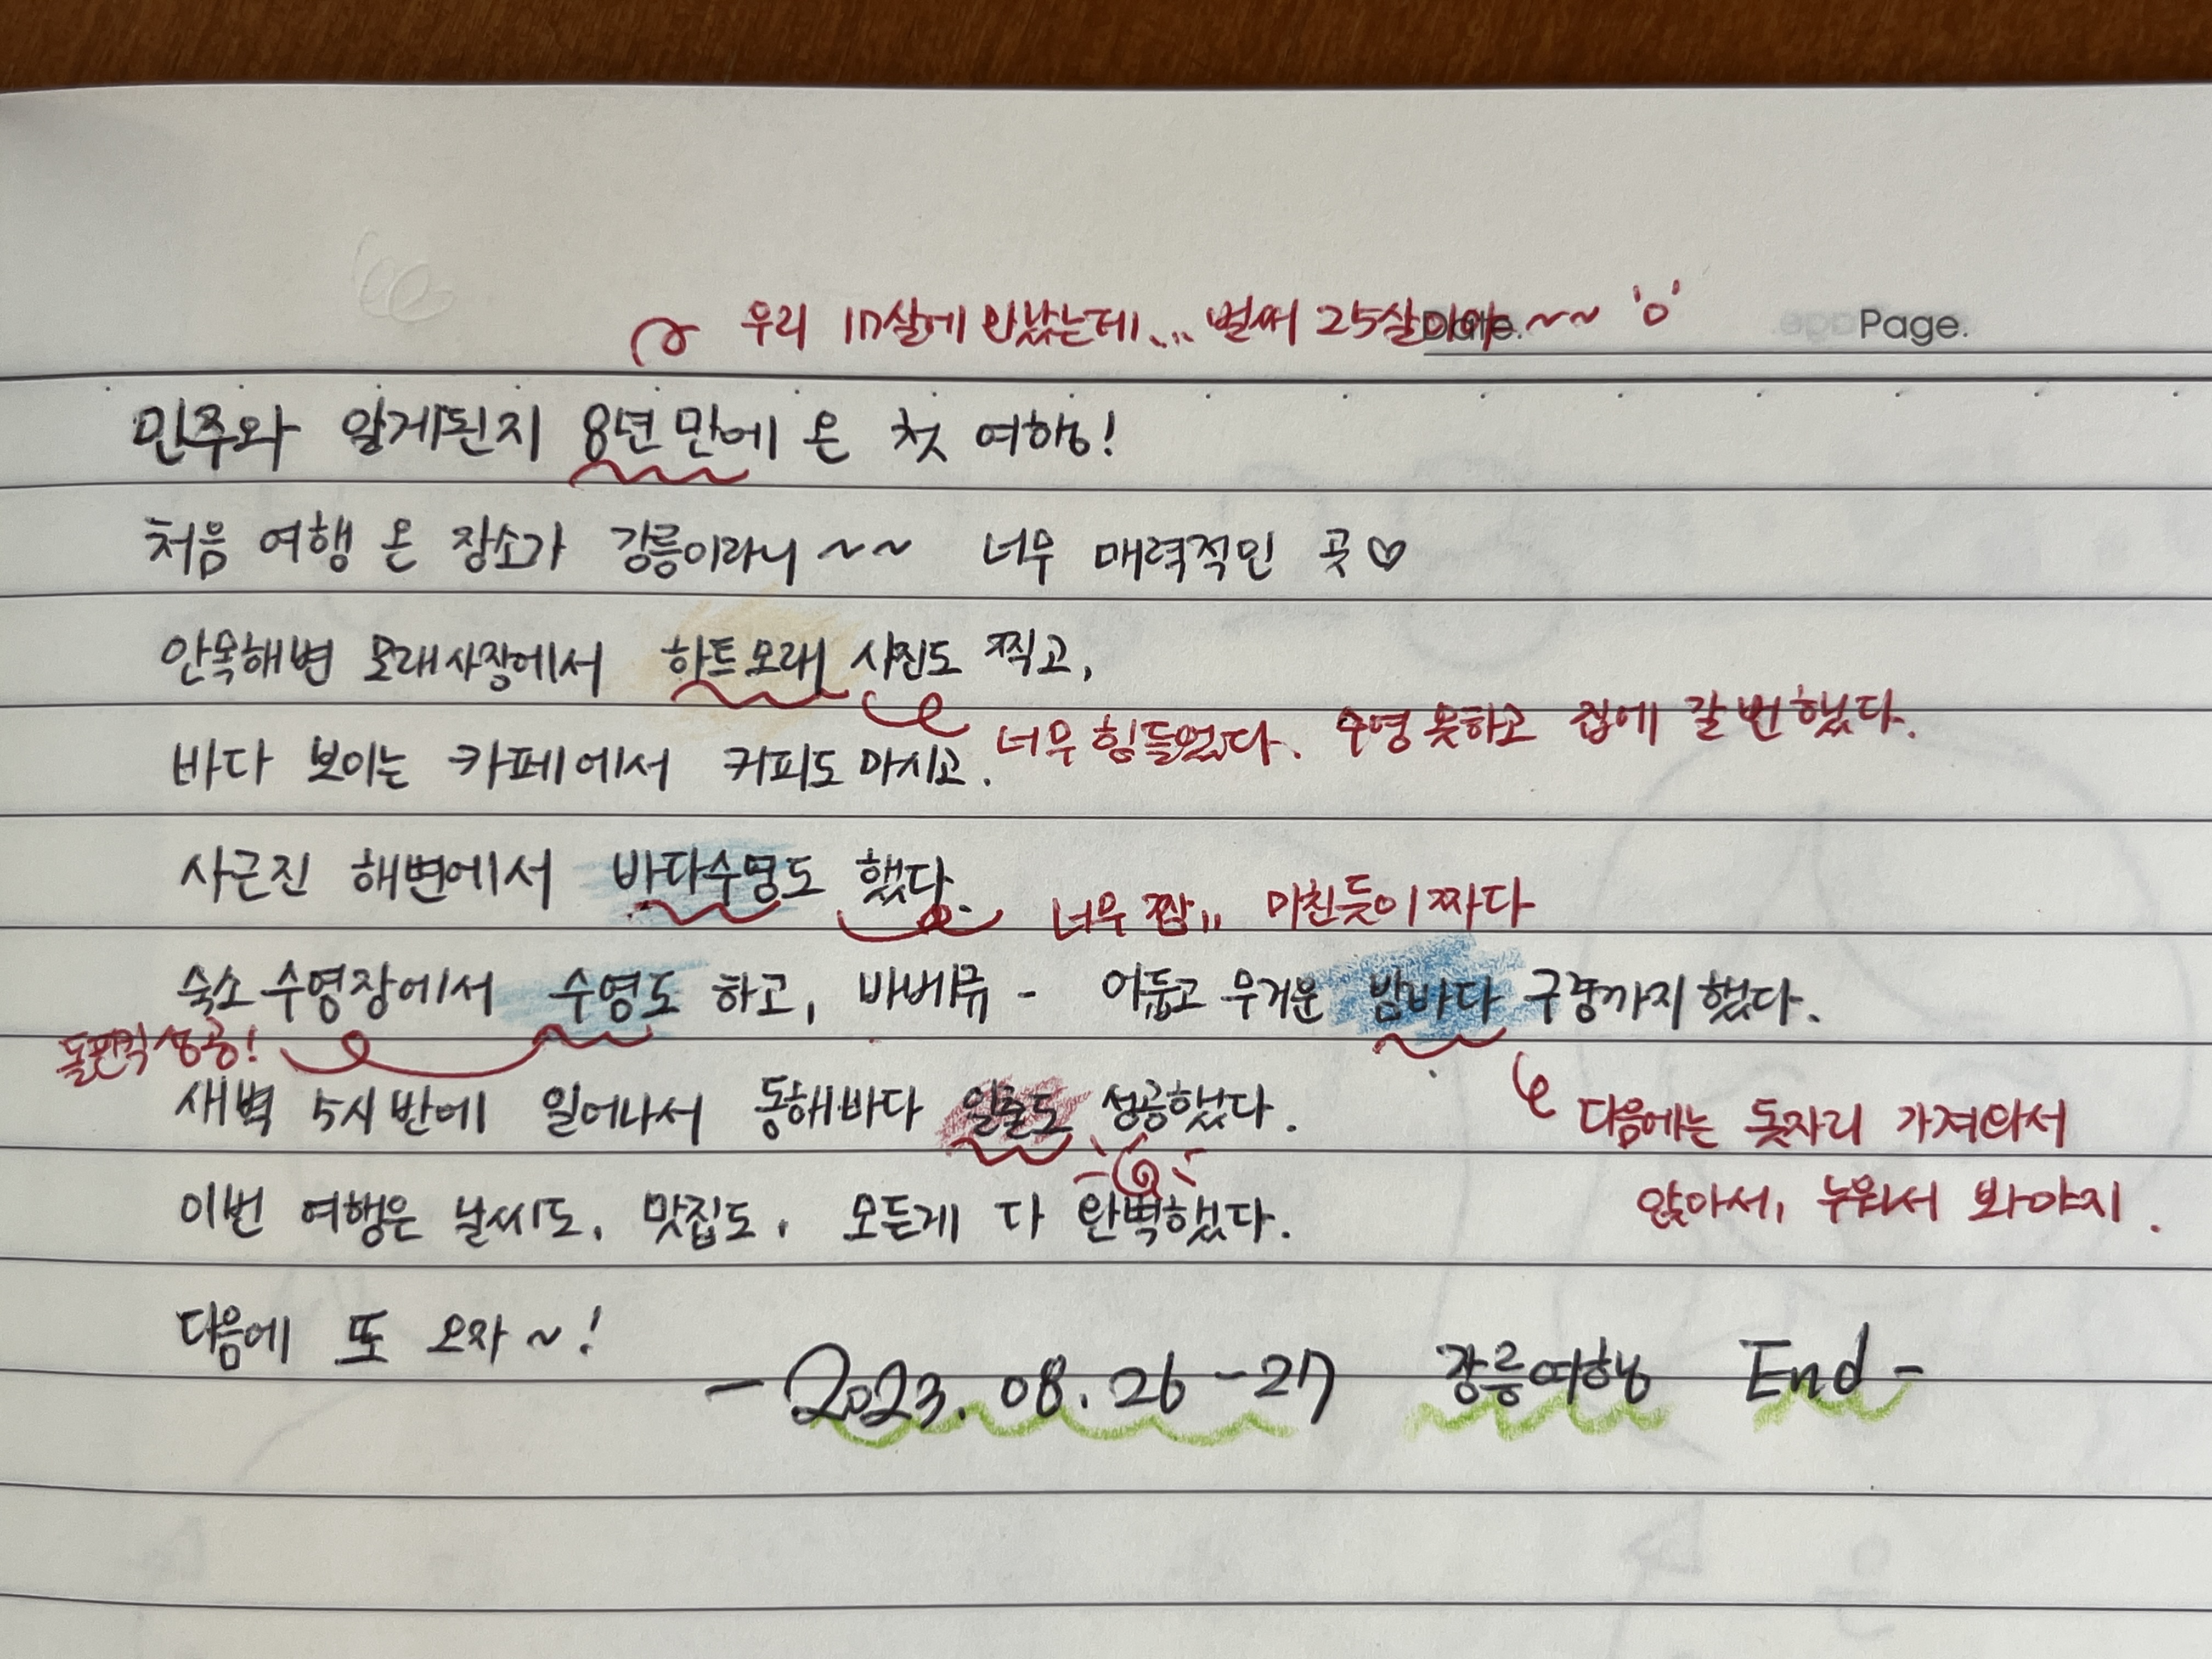 우리 17살에 만났는데... 벌써 25살이야 ~~ 'o'
Date.
Page.
민주와 알게된지 8년만에 온 첫 여행!
처음 여행 온 장소가 강릉이라니 ~~ 너무 매력적인 곳♡
안목해변 모래사장에서 하트모래 사진도 찍고,
너무 힘들었다. 수영 못하고 집에 갈 번했다.
바다 보이는 카페에서 커피도 마시고.
사근진 해변에서 바다수영도 했다.
너무 짬,, 미친듯이 짜다
숙소 수영장에서 수영도 하고, 바베큐 - 어둡고 무거운 밤바다 구경까지 했다.
돌핀킥 성공!
새벽 5시 반에 일어나서 동해바다 일출도 성공했다.
다음에는 돗자리 가져와서
앉아서, 누워서 봐야지.
이번 여행은 날씨도, 맛집도, 모든게 다 완벽했다.
다음에 또 오자 ~!
- 2023. 08. 26 - 27 강릉여행 End -